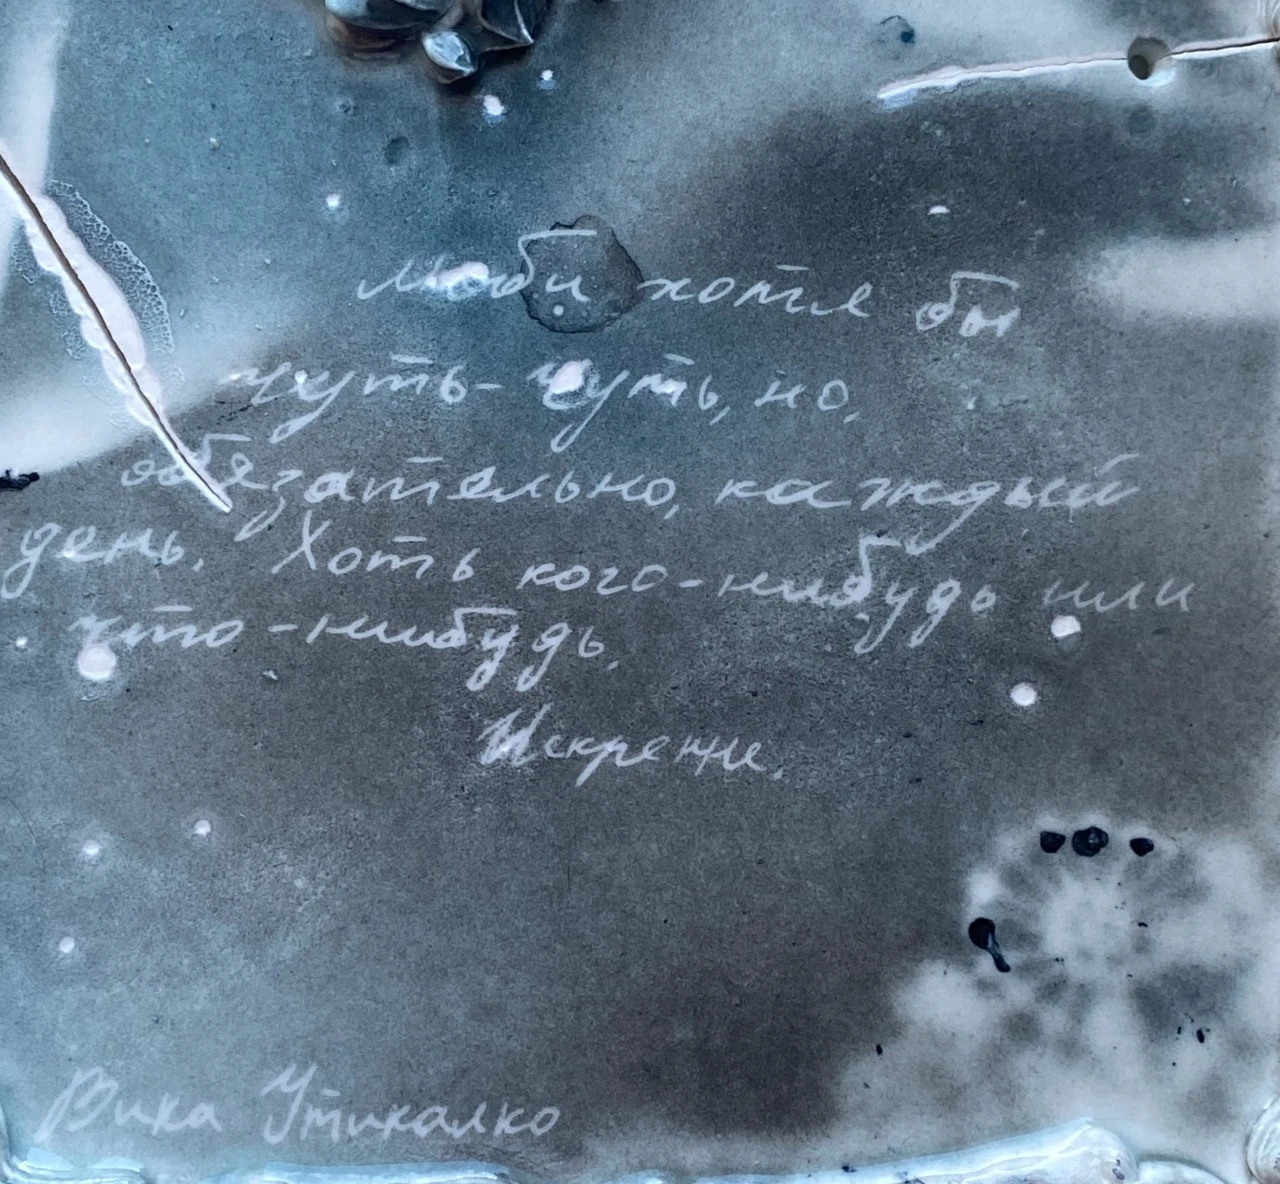 Люби хотя бы
чуть-чуть, но,
обязательно, каждый
день. Хоть кого-нибудь или
что-нибудь.
Искренне.
Вика Утикалко